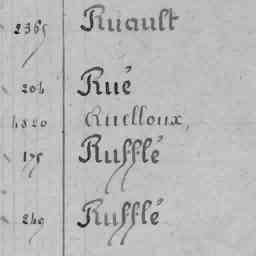 2365 Ruault
204 Rué
4820 Ruelloux,
175 Rufflé
249 Rufflé